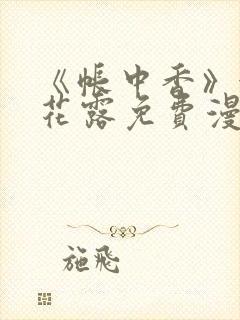 《帐中香》
花露免费漫
施飛